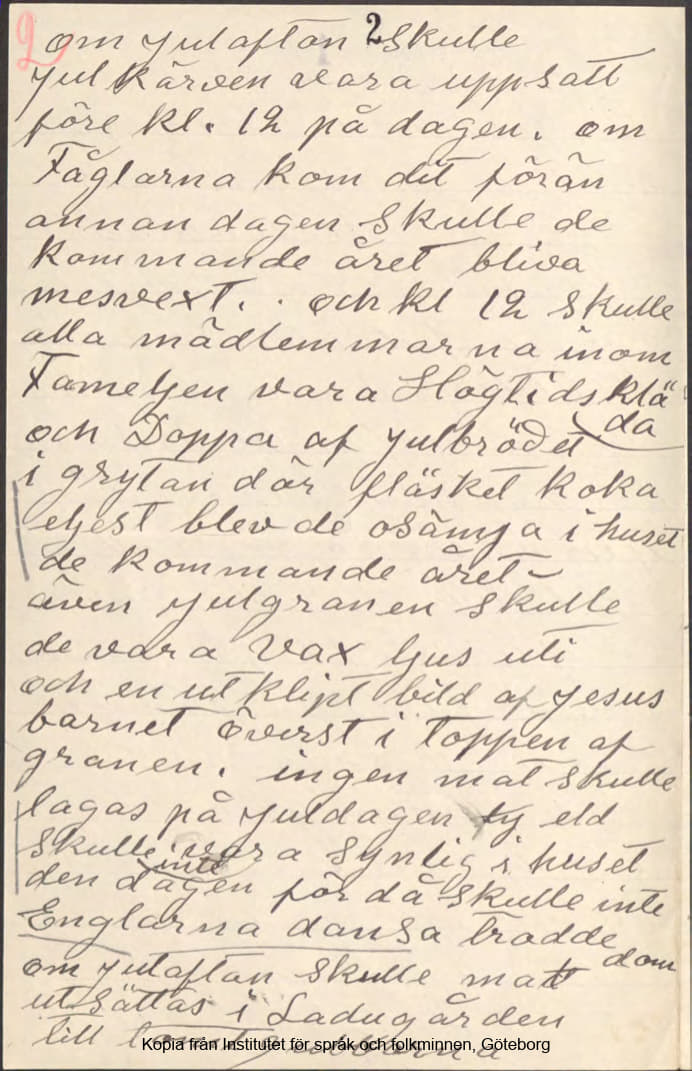 2 om Julaftan 2 skulle
Julkärven vara uppsatt
före kl. 12 på dagen. om
Fåglarna kom dit förän
annan dagen skulle de
kommande året bliva
mesvext. och kl 12 skulle
alla mädlemmarna inom
Fameljen vara Högtidsklä"
da
och Doppa af julbrödet
i grytan där fläsket koka
eljest blev de osämja i huset
de kommande året-
även julgranen skulle
de vara Vax ljus uti
och en utklipt bild af Jesus
barnet överst i Toppen af
granen. ingen mat skulle
lagas på Juldagen ty eld
skulle inte vara synlig i huset
den dagen för då skulle inte
Englarna dansa trodde
dom
om julaftan skulle mat
utsättas i Ladugården
till
Kopia från Institutet för språk och folkminnen, Göteborg